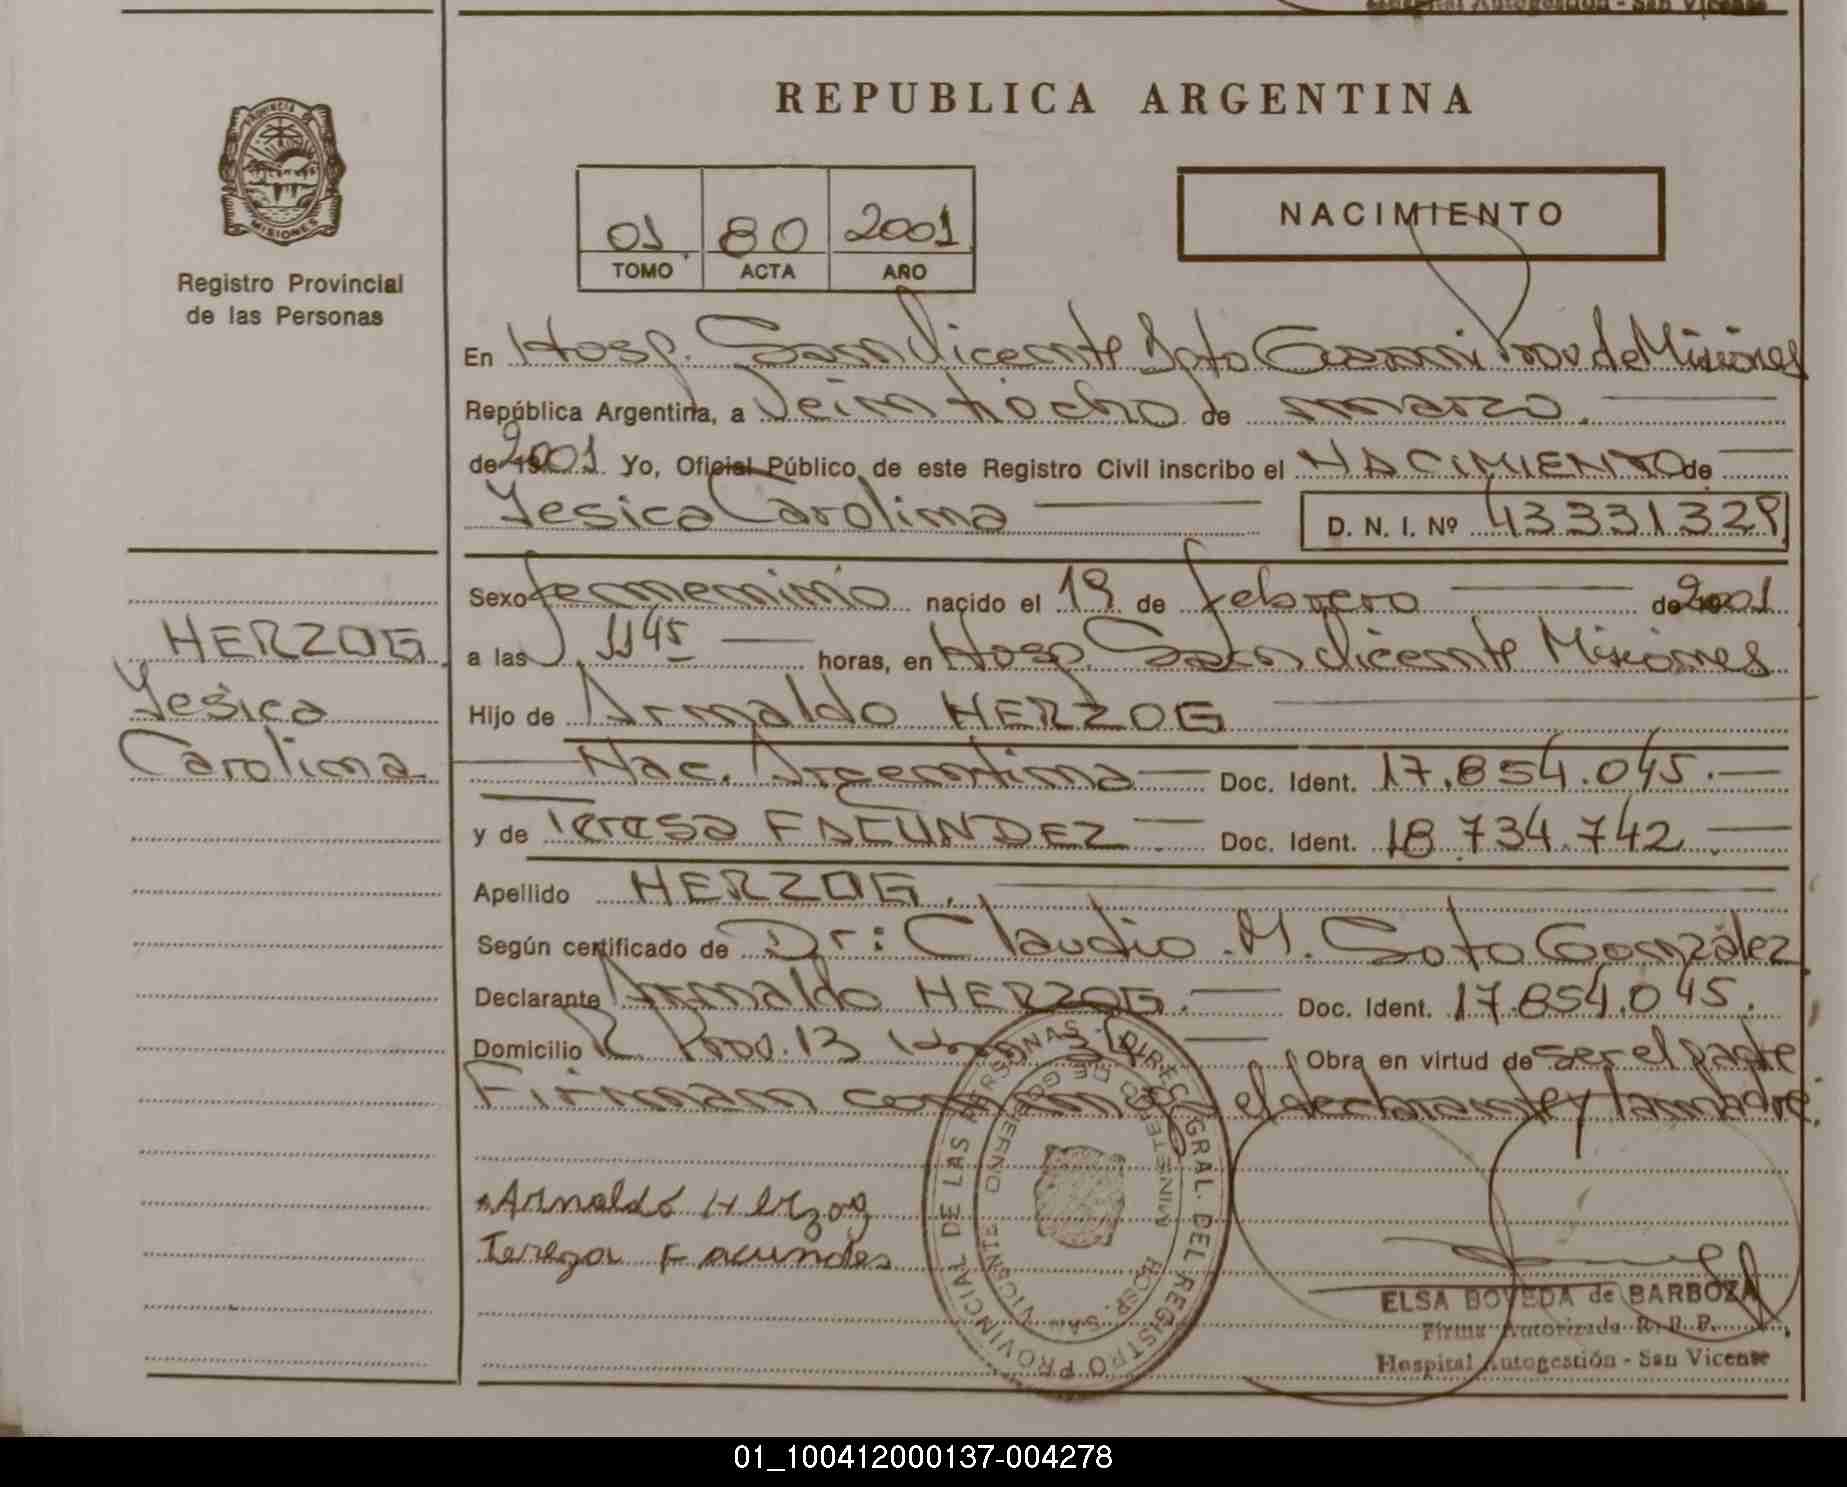 Hospital Autogestión - San Vicente
REPUBLICA ARGENTINA
PROVINCIA
MISIONES
Registro Provincial
de las Personas
01 80 2001
TOMO ACTA AÑO
NACIMIENTO
En Hosp. San Vicente Dpto Guarani Prov de Misiones
República Argentina, a Veintiocho de marzo.
de 2001 Yo, Oficial Público de este Registro Civil inscribo el NACIMIENTO de
Yesica Carolina D. N. I. Nº 43331328
Sexo femenino nacido el 19 de febrero de 2001
HERZOG
Yesica
Carolina
a las 11 45 horas, en Hosp. San Vicente Misiones
Hijo de Arnaldo HERZOG
Nac. Argentina Doc. Ident. 17.854.045.
y de Teresa FACUNDEZ Doc. Ident. 18.734.742
Apellido HERZOG.
Según certificado de Dr: Claudio M. Soto González
Declarante Arnaldo HERZOG. Doc. Ident. 17.854.045.
Domicilio R. Prov. 13 Km Obra en virtud de ser el padre
Firman conmigo el declarante y la madre.
Arnaldo Herzog
Tereza Facundes
DIREC. GRAL. DEL REGISTRO PROVINCIAL DE LAS PERSONAS
MINISTERIO DE GOBIERNO
HOSP. SAN VICENTE
ELSA BOVEDA de BARBOZA
Firma Autorizada R. P. P.
Hospital Autogestión - San Vicente
01_100412000137-004278